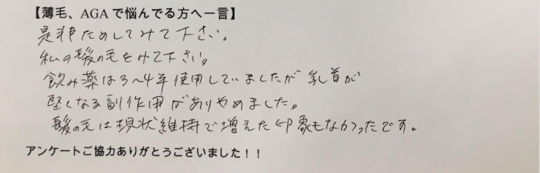 【薄毛、AGAで悩んでる方へ一言】
是非ためしてみて下さい。
私の髪の毛をみて下さい。
飲み薬は3〜4年使用していましたが乳首が
堅くなる副作用がありやめました。
髪の毛は現状維持で増えた印象もなかったです。
アンケートご協力ありがとうございました！！